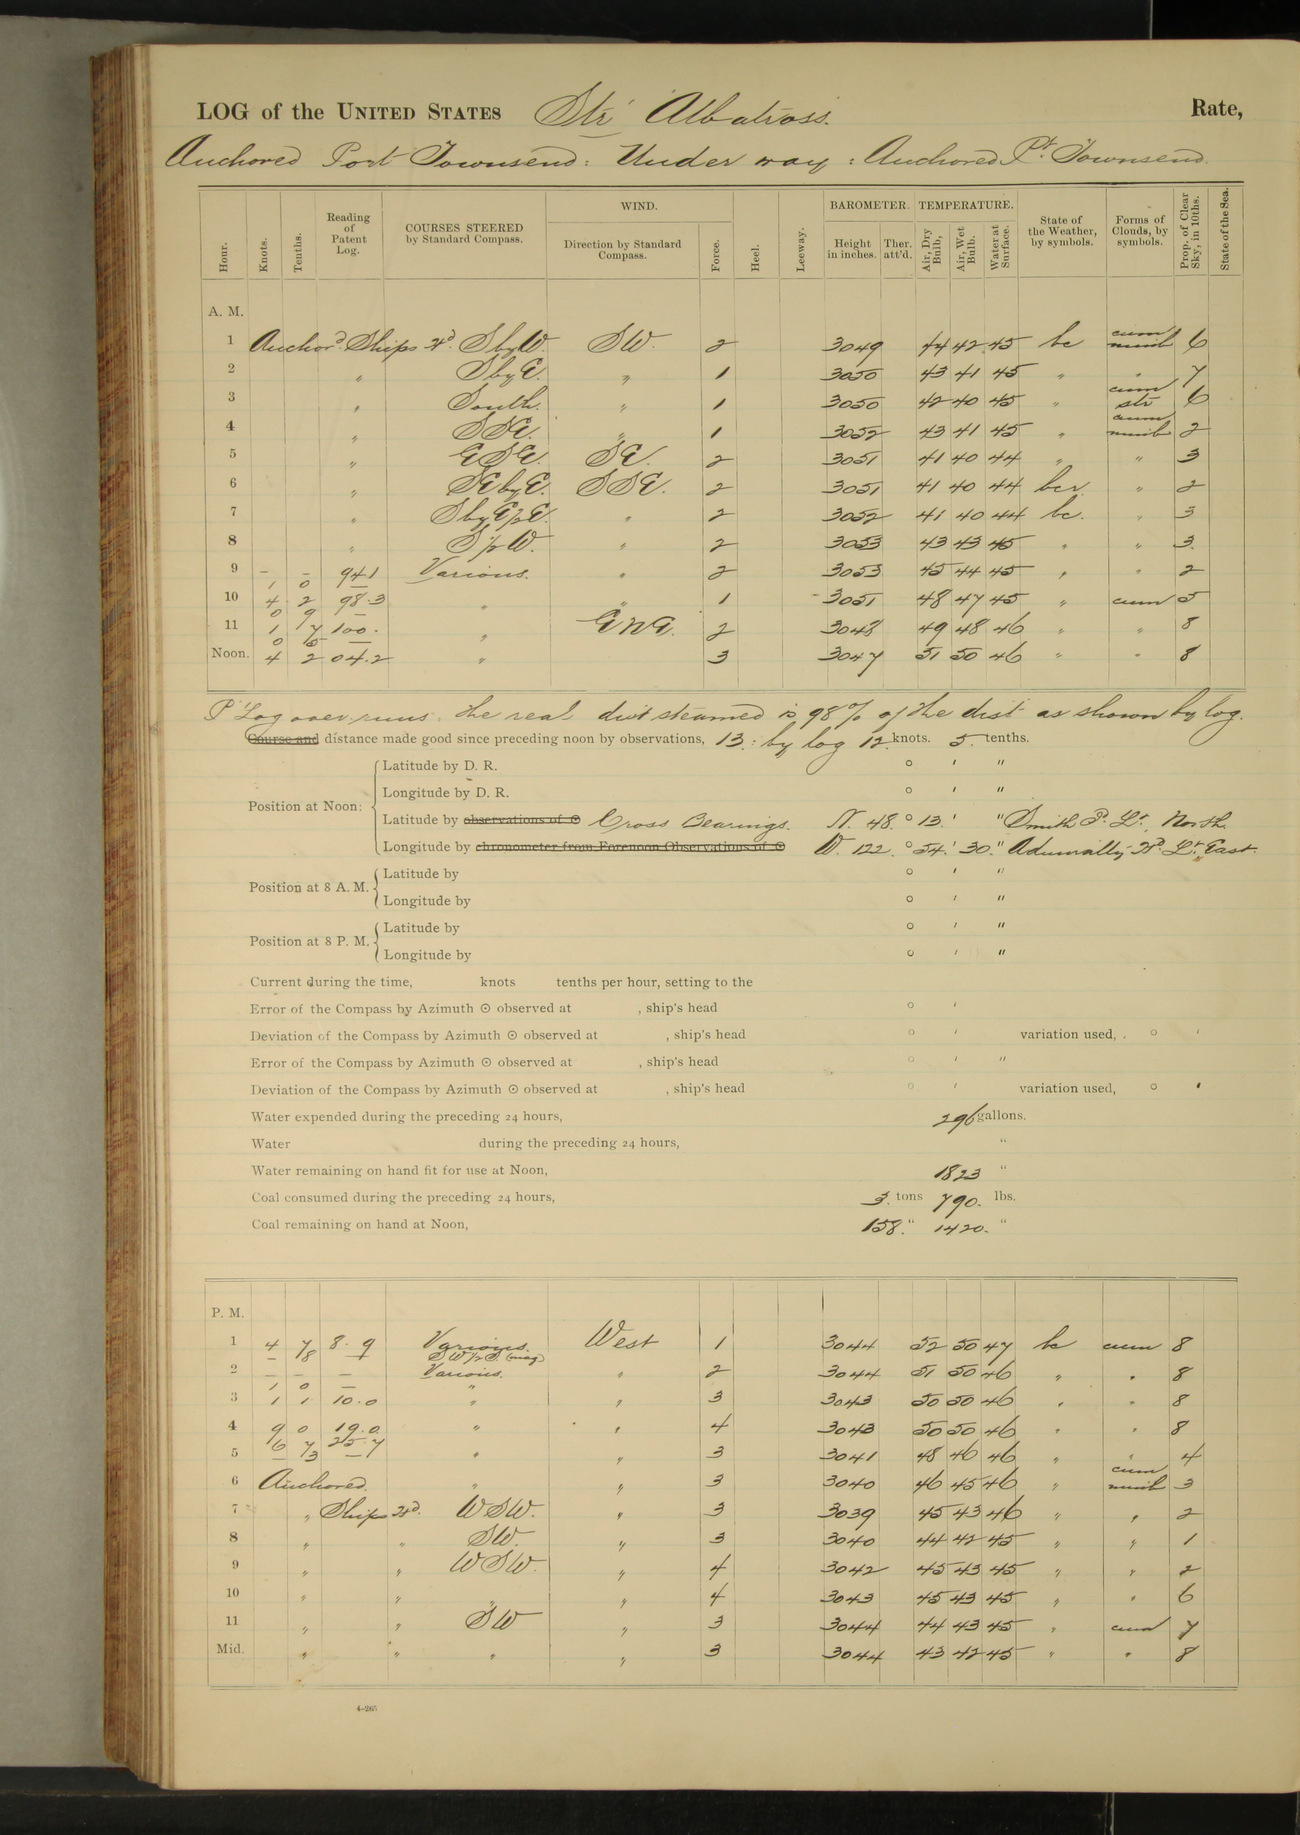 LOG of the UNITED STATES Str Albatross. Rate,
Anchored Port Townsend: Under way: Anchored Pt. Townsend.
Hour. Knots. Tenths. Reading of Patent Log. COURSES STEERED by Standard Compass. WIND. Direction by Standard Compass. Force. Heel. Leeway. BAROMETER. Height in inches. Ther. att'd. TEMPERATURE. Air, Dry Bulb, Air, Wet Bulb. Water at Surface. State of the Weather, by symbols. Forms of Clouds, by symbols. Prop. of Clear Sky, in 10ths. State of the Sea.
A. M.
1 Anchord. Ships Hd. S by W. SW. 2 3049 44 42 45 bc cum nimb 6
2 " S by E. " 1 3050 43 41 45 " " 7
3 " South. " 1 3050 42 40 45 " cum str 6
4 " SSE. " 1 3052 43 41 45 " cum nimb 2
5 " ESE. SE. 2 3051 41 40 44 " " 3
6 " SE by E. SSE. 2 3051 41 40 44 bcr. " 2
7 " S by E ½ E. " 2 3052 41 40 44 bc. " 3
8 " S ½ W. " 2 3053 43 43 45 " " 3.
9 – – 941 Various. " 2 3053 45 44 45 " " 2
1 0 –
10 4 2 98.3 " " 1 3051 48 47 45 " cum 5
0 9 –
11 1 7 100. " ENE. 2 3048 49 48 46 " " 8
0 5 –
Noon. 4 2 04.2 " 3 3047 51 50 46 " " 8
P. Log over runs. The real dist steamed is 98% of the dist as shown by log.
Course and distance made good since preceding noon by observations, 13.: by log 12 knots. 5. tenths.
Position at Noon: Latitude by D. R. ° ' "
Longitude by D. R. ° ' "
Latitude by observations of ☉ Cross Bearings. N. 48.° 13.' " Smith Id. Lt. North.
Longitude by chronometer from Forenoon Observations of ☉ W. 122.° 54.' 30." Admiralty Hd. Lt. East.
Position at 8 A. M. Latitude by ° ' "
Longitude by ° ' "
Position at 8 P. M. Latitude by ° ' "
Longitude by ° ' "
Current during the time, knots tenths per hour, setting to the
Error of the Compass by Azimuth ☉ observed at , ship's head ° '
Deviation of the Compass by Azimuth ☉ observed at , ship's head ° ' variation used, . ° '
Error of the Compass by Azimuth ☉ observed at , ship's head ° ' "
Deviation of the Compass by Azimuth ☉ observed at , ship's head ° ' variation used, ° '
Water expended during the preceding 24 hours, 296 gallons.
Water during the preceding 24 hours, "
Water remaining on hand fit for use at Noon, 1823 "
Coal consumed during the preceding 24 hours, 3. tons 790. lbs.
Coal remaining on hand at Noon, 158. " 1420. "
P. M.
1 4 7 8.9 Various. West 1 3044 52 50 47 bc cum 8
– 8 – SW ½ S. (mag)
2 – – – Various. " 2 3044 51 50 46 " " 8
1 0 –
3 1 1 10.0 " " 3 3043 50 50 46 " " 8
4 9 0 19.0 " " 4 3043 50 50 46 " " 8
6 7 25.7
5 – 3 – " " 3 3041 48 46 46 " " 4
6 Anchored. " " 3 3040 46 45 46 " cum nimb 3
7 " Ships Hd. WSW. " 3 3039 45 43 46 " " 2
8 " " SW. " 3 3040 44 42 45 " " 1
9 " " WSW. " 4 3042 45 43 45 " " 2
10 " " " " 4 3043 45 43 45 " " 6
11 " " SW " 3 3044 44 43 45 " cum 7
Mid. " " " " 3 3044 43 42 45 " " 8
4–265